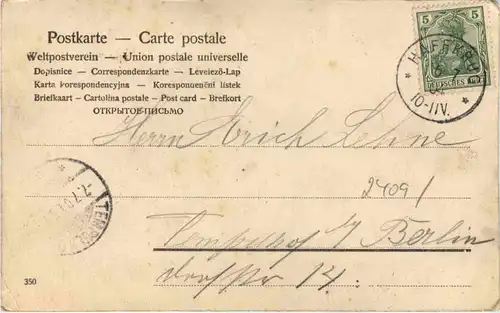 Postkarte — Carte postale
Weltpostverein — Union postale universelle
Dopisnice — Correspondenzkarte — Levelező-Lap
Karta korespondencyjna — Korespondenční lístek
Briefkaart — Cartolina postale — Post card — Brefkort
ОТКРЫТОЕ ПИСЬМО
5 5
DEUTSCHES
10-11V.
Herrn Erich Lehne
2409/
Tempelhof b/ Berlin
Dorfstr 14.
350